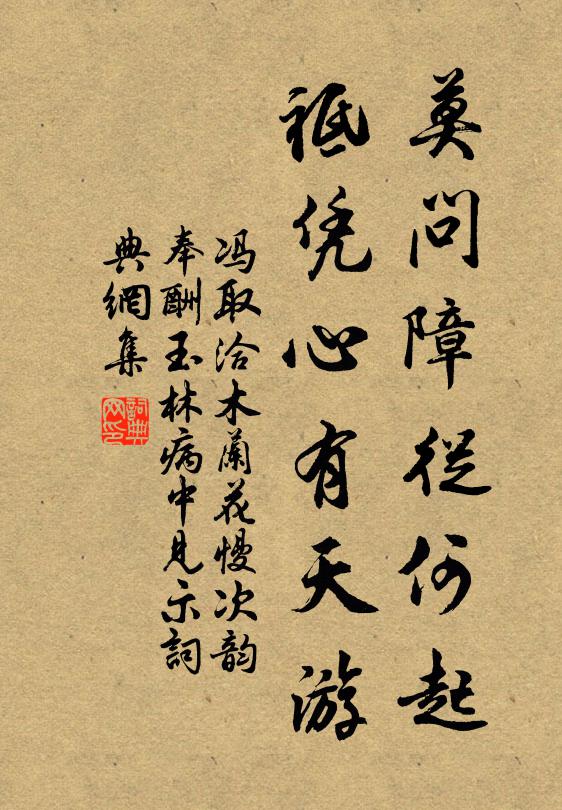 莫问障從何起
祗凭心有天游
冯取洽木蘭花慢次韵
奉酬玉林病中見示詞
典網集
詞典網印